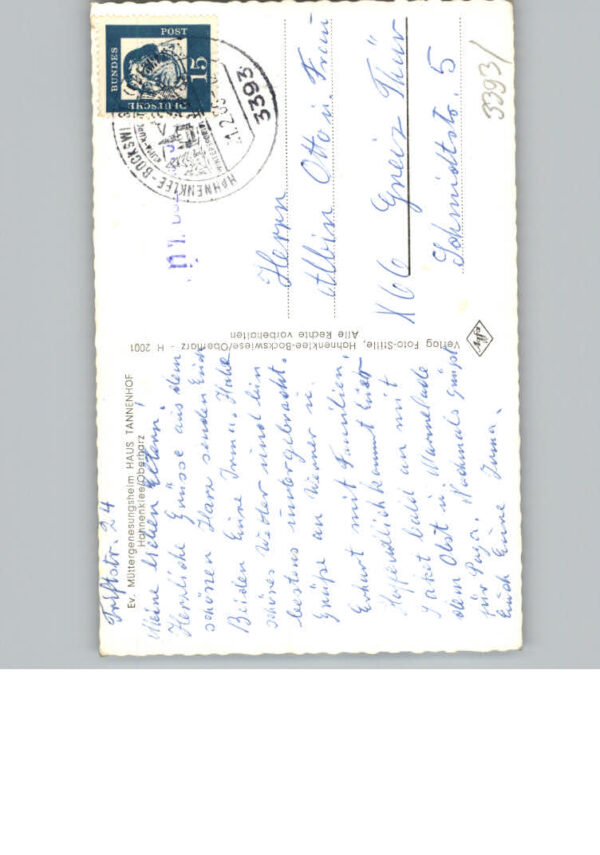 Ev. Müttergenesungsheim HAUS TANNENHOF
Hahnenklee/Oberharz
Triftstr. 24
Meine lieben Eltern!
Herzliche Grüsse aus dem
schönen Harz senden Euch
Beiden Eure Irma. Habe
schönes Wetter und bin
bestens untergebracht.
Grüße an Werner u.
Erhart mit Familien,
Hoffendlich kommt
Paket bald an mit
dem Obst u. Marmelade
für Papa. Nochmals grüßt
Euch Eure Irma.
Verlag Foto-Stille, Hahnenklee-Bockswiese/Oberharz - H 2001
Alle Rechte vorbehalten
DEUTSCHE
BUNDES
POST
15
3393
HAHNENKLEE-BOCKSWIESE
Herrn
Albin Otto u. Frau
X66 Greiz Thür
Schmidtstr. 5
3393/